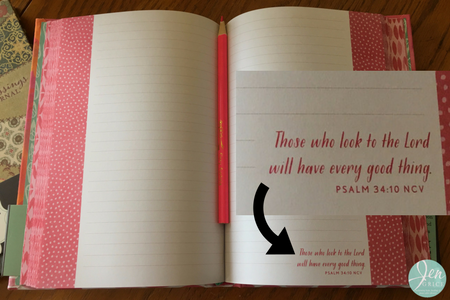 Those who look to the Lord
will have every good thing.
PSALM 34:10 NCV
Those who look to the Lord
will have every good thing
PSALM 34:10 NCV
Jen